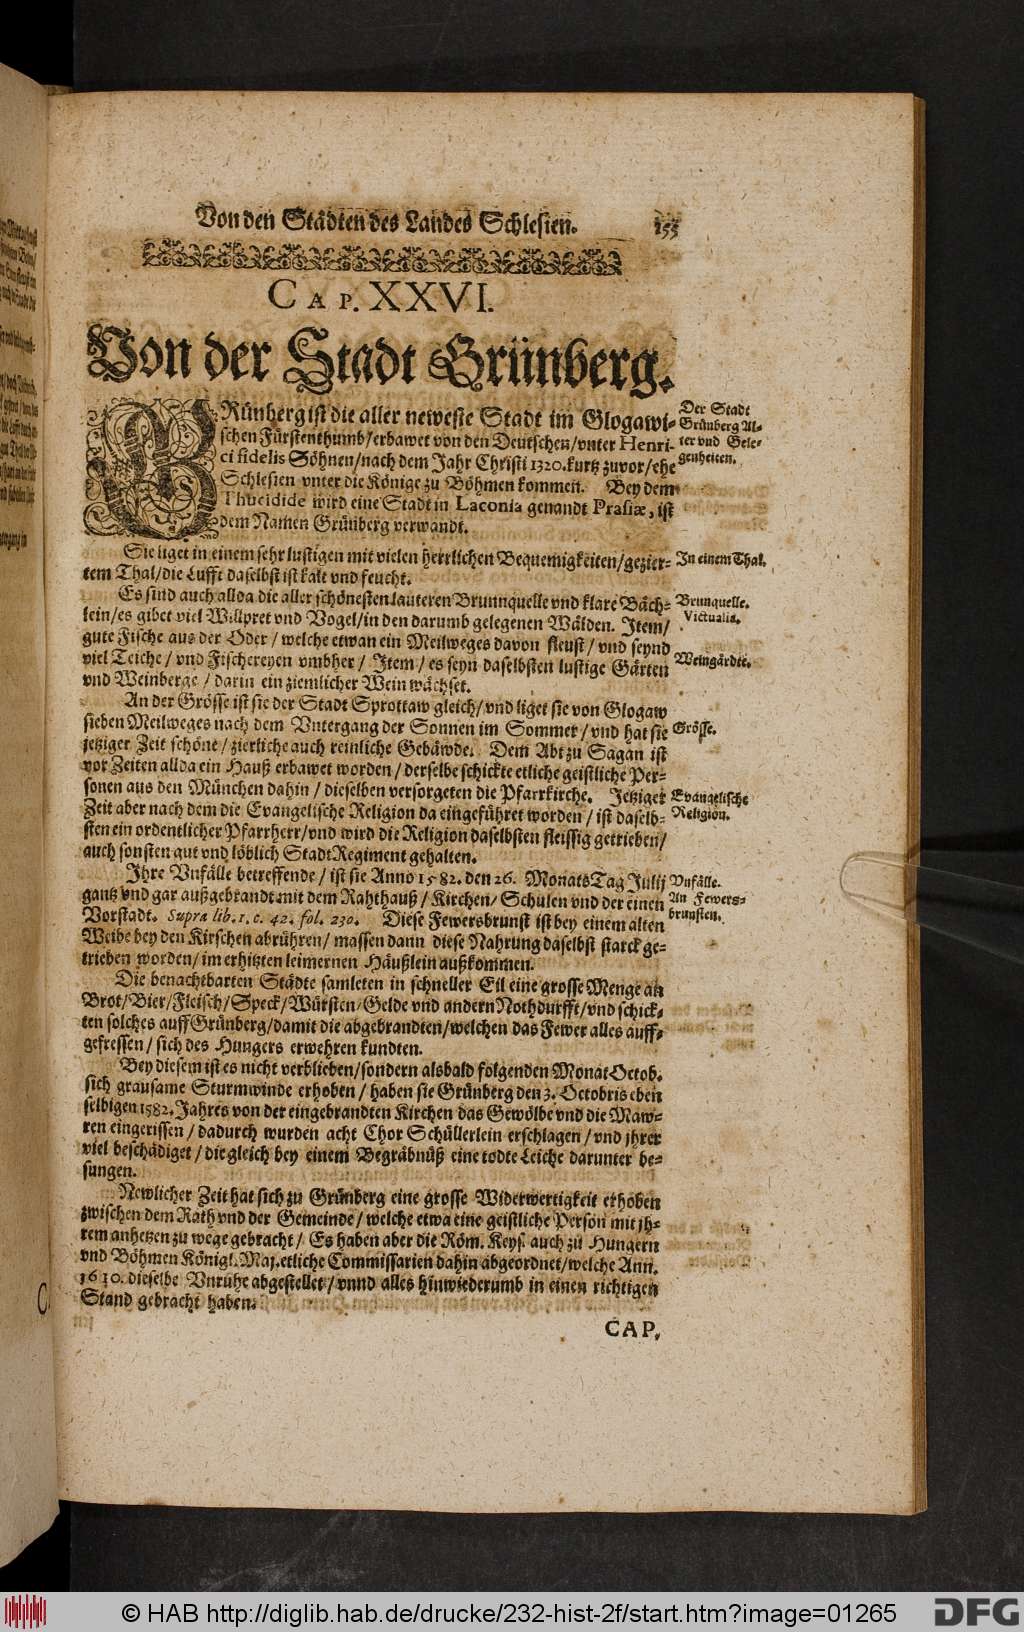 Von den Städten des Landes Schlesien. 155
CAP. XXVI.
Von der Stadt Grünberg.
GRünberg ist die aller neweste Stadt im Glogawi-
schen Fürstenthumb/erbawet von den Deutschen/vnter Henri-
ci fidelis Söhnen/nach dem Jahr Christi 1320. kurtz zuvor/ehe
Schlesien vnter die Könige zu Böhmen kommen. Bey dem
Thucidide wird eine Stadt in Laconia genandt Prasiæ, ist
dem Namen Grünberg verwandt.
Der Stadt
Grünberg Al-
ter vnd Gele-
genheiten.
Sie liget in einem sehr lustigen mit vielen herrlichen Bequemigkeiten/gezier-
tem Thal/die Lufft daselbst ist kalt vnd feucht.
In einem Thal.
Es sind auch allda die aller schönesten lauteren Brunnquelle vnd klare Bäch-
lein/es gibet viel Willpret vnd Vogel/in den darumb gelegenen Wälden. Item/
gute Fische aus der Oder/welche etwan ein Meilweges davon fleust/vnd seynd
viel Teiche/vnd Fischereyen vmbher/ Item/es seyn daselbsten lustige Gärten
vnd Weinberge/darin ein ziemlicher Wein wächset.
Brunquelle.
Victualia.
Weingärdte.
An der Grösse ist sie der Stadt Sprottaw gleich/vnd liget sie von Glogaw
sieben Meilweges nach dem Vntergang der Sonnen im Sommer/vnd hat sie
jetziger Zeit schöne/zierliche auch reinliche Gebäwde. Dem Abt zu Sagan ist
vor Zeiten allda ein Hauß erbawet worden/derselbe schickte etliche geistliche Per-
sonen aus den München dahin/dieselben versorgeten die Pfarrkirche. Jetziger
Zeit aber nach dem die Evangelische Religion da eingeführet worden/ist daselb-
sten ein ordentlicher Pfarrherr/vnd wird die Religion daselbsten fleissig getrieben/
auch sonsten gut vnd löblich StadtRegiment gehalten.
Grösse.
Evangelische
Religion.
Ihre Vnfälle betreffende/ist sie Anno 1582. den 26. MonatsTag Julij
gantz vnd gar außgebrandt mit dem Rahthauß/Kirchen/Schulen vnd der einen
Vorstadt. Supra lib. 1. c. 42. fol. 230. Diese Fewersbrunst ist bey einem alten
Weibe bey den Kirschen abrühren/massen dann diese Nahrung daselbst starck ge-
trieben worden/im erhitzten leimernen Häußlein außkommen.
Vnfälle.
An Fewers-
brunsten.
Die benachtbarten Städte samleten in schneller Eil eine grosse Menge an
Brot/Bier/Fleisch/Speck/Würsten/Gelde vnd andern Nothdurfft/vnd schick-
ten solches auff Grünberg/damit die abgebrandten/welchen das Fewer alles auff-
gefressen/sich des Hungers erwehren kundten.
Bey diesem ist es nicht verblieben/sondern alsbald folgenden Monat Octob.
sich grausame Sturmwinde erhoben/haben sie Grünberg den 3. Octobris eben
selbigen 1582. Jahres von der eingebrandten Kirchen das Gewölbe vnd die Maw-
ren eingerissen/dadurch wurden acht Chor Schüllerlein erschlagen/vnd jhrer
viel beschädiget/die gleich bey einem Begräbnüß eine todte Leiche darunter be-
sungen.
Newlicher Zeit hat sich zu Grünberg eine grosse Widerwertigkeit erhoben
zwischen dem Rath vnd der Gemeinde/welche etwa eine geistliche Person mit jh-
rem anhetzen zu wege gebracht/ Es haben aber die Röm. Keys. auch zu Hungern
vnd Böhmen Königl. Maj. etliche Commissarien dahin abgeordnet/welche Ann.
1610. dieselbe Vnruhe abgestellet/vnnd alles hinwiederumb in einen richtigen
Stand gebracht haben.
CAP.
© HAB http://diglib.hab.de/drucke/232-hist-2f/start.htm?image=01265
DFG